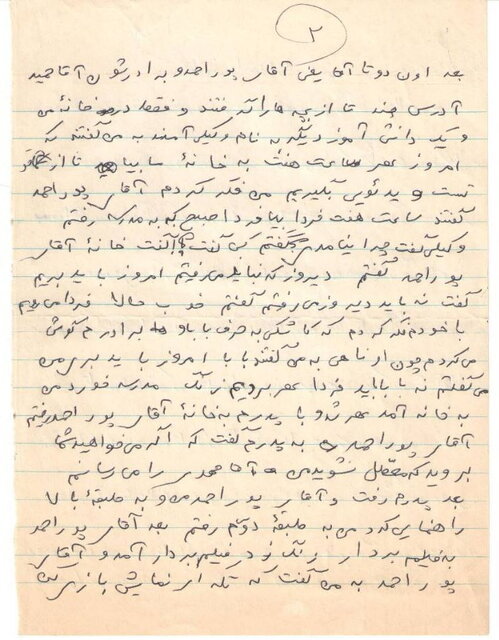 ۲
بعد اون دو تا آقا یعنی آقای پوراحمد و برادرشون آقا حمید
آدرس چند تا از بچه ها را گرفتند و فقط در خانهٔ من
و یک دانش آموز دیگه به نام وکیلی آمدند به من گفتند که
امروز عصر ساعت هفت به خانهٔ ما بیا تا از تو
تست ویدئویی بگیریم من فکر کردم آقای پوراحمد
گفتند ساعت هفت فردا بیا فردا صبح که به مدرسه رفتم
وکیلی گفت چرا نیامدی گفتم کی گفت گفت خانهٔ آقای
پوراحمد گفتم دیروز که نباید می رفتیم امروز باید بریم
گفت نه باید دیروز می رفتم گفتم خوب حالا فردا میریم
با خودم فکر کردم که کاشکی به حرف بابا و برادرم گوش
می کردم چون از ناحی به من گفتند بابا امروز باید بری من
می گفتم نه بابا باید فردا عصر برویم زنگ مدرسه خورد من
به خانه آمدم عصر شد و با پدرم به خانهٔ آقای پوراحمد رفتیم
آقای پوراحمد به پدرم گفت که اگر می خواهید شما
بروید که معطل نشوید من آقا مهدی را می رسانم
بعد پدرم رفت و آقای پوراحمد من و به طبقهٔ بالا
راهنمایی کرد من به طبقهٔ دوم رفتم بعد آقای پوراحمد
به فیلمبردار زنگ زد فیلمبردار آمد و آقای
پوراحمد به من گفت که تکه ای نمایش بازی کن